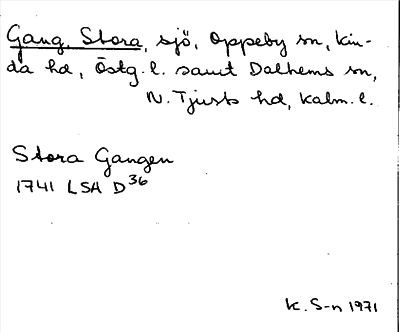 Gang, Stora, sjö, Oppeby sn, Kin-
da hd, Östg. l. samt Dalhems sn,
N. Tjusts hd, Kalm. l.
Stora Gangen
1741 LSA D36
K. S-n 1971